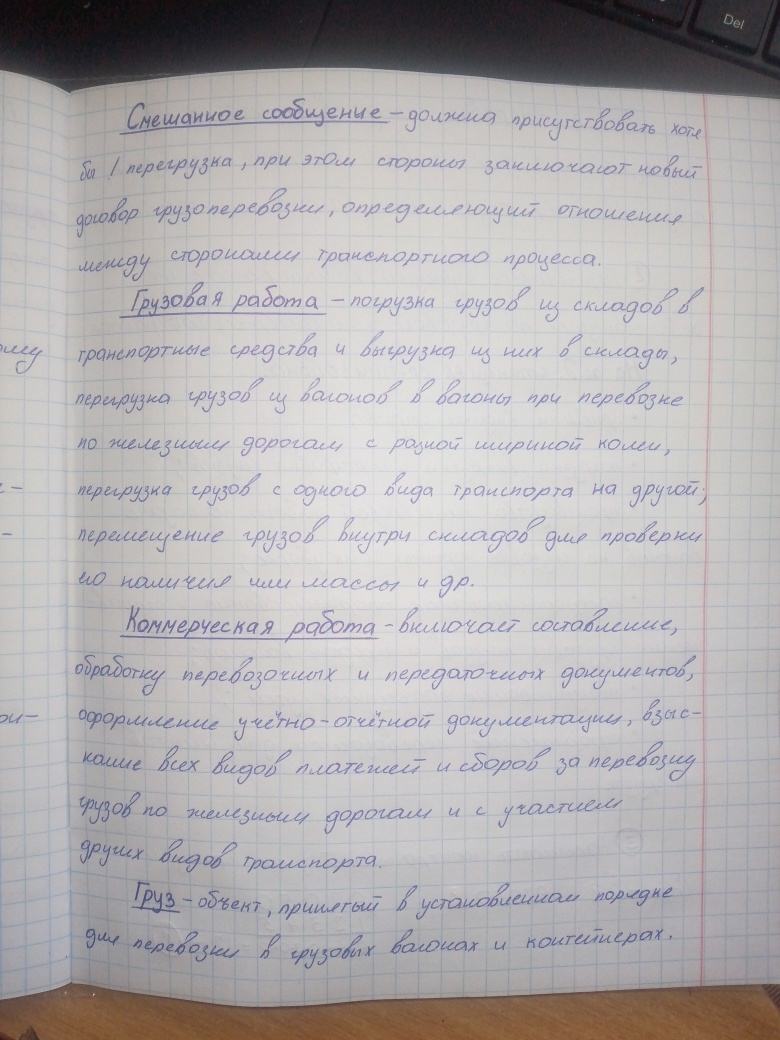 Del
Смешанное сообщение – должна присутствовать хотя
бы 1 перегрузка, при этом стороны заключают новый
договор грузоперевозки, определяющий отношения
между сторонами транспортного процесса.
Грузовая работа – погрузка грузов из складов в
транспортные средства и выгрузка из них в склады,
перегрузка грузов из вагонов в вагоны при перевозке
по железным дорогам с разной шириной колеи,
перегрузка грузов с одного вида транспорта на другой;
перемещение грузов внутри складов для проверки
его наличия или массы и др.
Коммерческая работа – включает составление,
обработку перевозочных и передаточных документов,
оформление учётно-отчётной документации, взыс-
кание всех видов платежей и сборов за перевозку
грузов по железным дорогам и с участием
других видов транспорта.
Груз – объект, принятый в установленном порядке
для перевозки в грузовых вагонах и контейнерах.